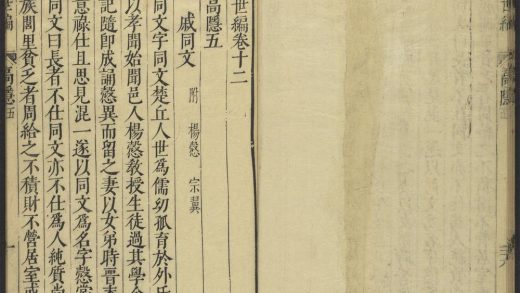 世編
高隱
五
世編卷十二
高隱五
戚同文 附 楊愨 宗翼
同文字同文楚丘人世爲儒幼孤育於外氏
以孝聞始聞邑人楊愨教授生徒過其學
記隨即成誦愨異而留之妻以女弟時晉末
意祿仕且思見混一遂以同文爲名字愨嘗
同文曰長者不仕同文亦不仕爲人純質尚
族閭里貧乏者周給之不積財不營居室或
世編
高隱
五
一